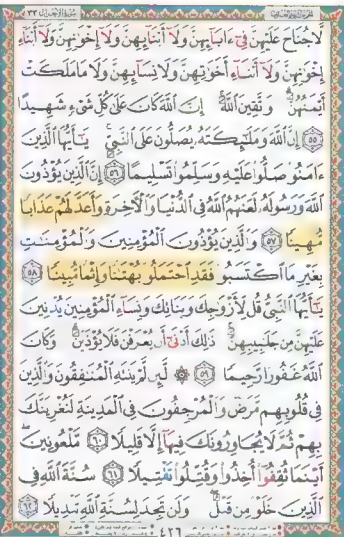 سورة الأحزاب ٣٣
لَّا جُنَاحَ عَلَيْهِنَّ فِىٓ ءَابَآئِهِنَّ وَلَآ أَبْنَآئِهِنَّ وَلَآ إِخْوَٰنِهِنَّ وَلَآ أَبْنَآءِ
إِخْوَٰنِهِنَّ وَلَآ أَبْنَآءِ أَخَوَٰتِهِنَّ وَلَا نِسَآئِهِنَّ وَلَا مَا مَلَكَتْ
أَيْمَٰنُهُنَّ ۗ وَٱتَّقِينَ ٱللَّهَ ۚ إِنَّ ٱللَّهَ كَانَ عَلَىٰ كُلِّ شَىْءٍ شَهِيدًا
٥٥ إِنَّ ٱللَّهَ وَمَلَٰٓئِكَتَهُۥ يُصَلُّونَ عَلَى ٱلنَّبِىِّ ۚ يَٰٓأَيُّهَا ٱلَّذِينَ
ءَامَنُوا۟ صَلُّوا۟ عَلَيْهِ وَسَلِّمُوا۟ تَسْلِيمًا ٥٦ إِنَّ ٱلَّذِينَ يُؤْذُونَ
ٱللَّهَ وَرَسُولَهُۥ لَعَنَهُمُ ٱللَّهُ فِى ٱلدُّنْيَا وَٱلْءَاخِرَةِ وَأَعَدَّ لَهُمْ عَذَابًا
مُّهِينًا ٥٧ وَٱلَّذِينَ يُؤْذُونَ ٱلْمُؤْمِنِينَ وَٱلْمُؤْمِنَٰتِ
بِغَيْرِ مَا ٱكْتَسَبُوا۟ فَقَدِ ٱحْتَمَلُوا۟ بُهْتَٰنًا وَإِثْمًا مُّبِينًا ٥٨
يَٰٓأَيُّهَا ٱلنَّبِىُّ قُل لِّأَزْوَٰجِكَ وَبَنَاتِكَ وَنِسَآءِ ٱلْمُؤْمِنِينَ يُدْنِينَ
عَلَيْهِنَّ مِن جَلَٰبِيبِهِنَّ ۚ ذَٰلِكَ أَدْنَىٰٓ أَن يُعْرَفْنَ فَلَا يُؤْذَيْنَ ۗ وَكَانَ
ٱللَّهُ غَفُورًا رَّحِيمًا ٥٩ ۞ لَّئِن لَّمْ يَنتَهِ ٱلْمُنَٰفِقُونَ وَٱلَّذِينَ
فِى قُلُوبِهِم مَّرَضٌ وَٱلْمُرْجِفُونَ فِى ٱلْمَدِينَةِ لَنُغْرِيَنَّكَ
بِهِمْ ثُمَّ لَا يُجَاوِرُونَكَ فِيهَآ إِلَّا قَلِيلًا ٦٠ مَّلْعُونِينَ ۖ
أَيْنَمَا ثُقِفُوٓا۟ أُخِذُوا۟ وَقُتِّلُوا۟ تَقْتِيلًا ٦١ سُنَّةَ ٱللَّهِ فِى
ٱلَّذِينَ خَلَوْا۟ مِن قَبْلُ ۖ وَلَن تَجِدَ لِسُنَّةِ ٱللَّهِ تَبْدِيلًا ٦٢
٤٢٦